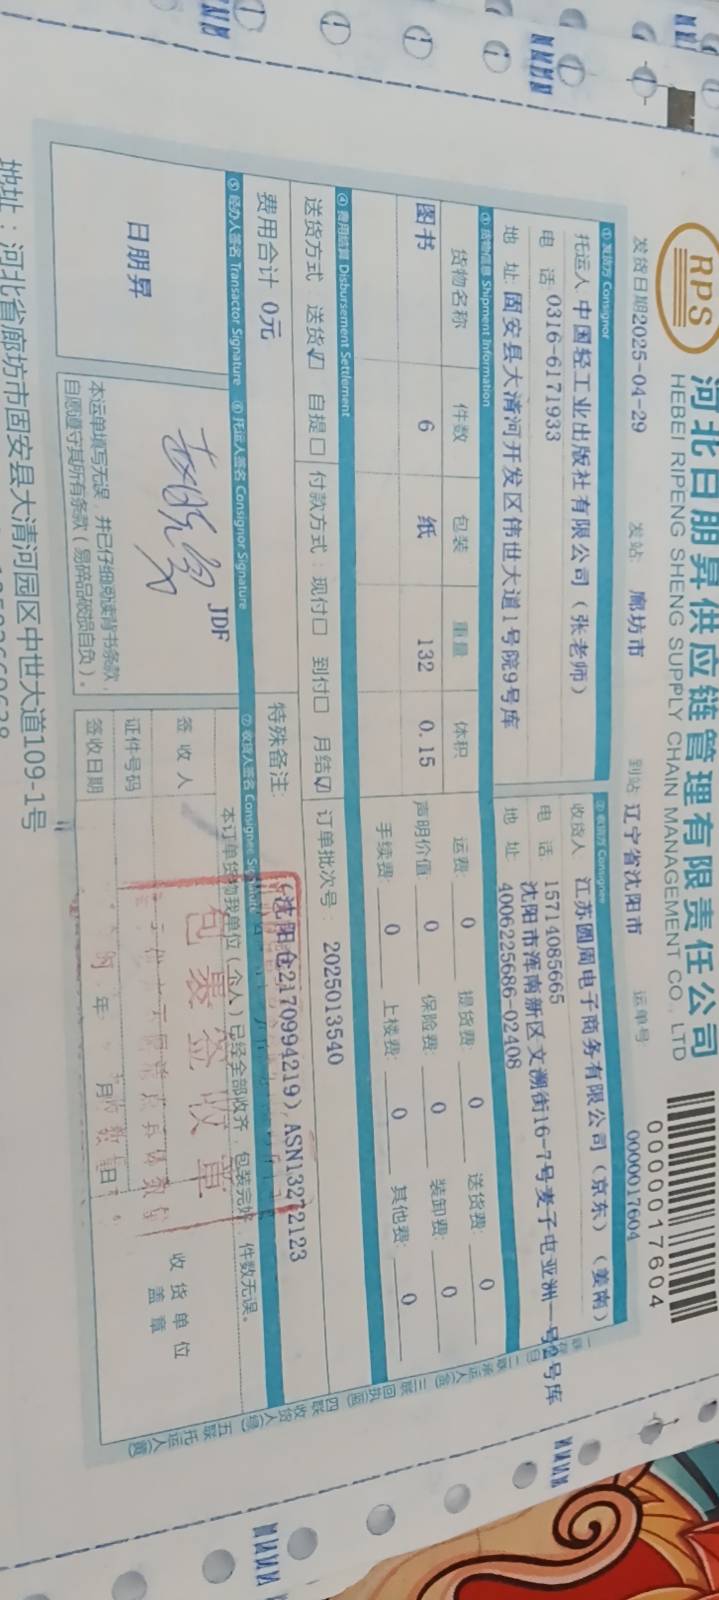 RPS
河北日朋昇供应链管理有限责任公司
HEBEI RIPENG SHENG SUPPLY CHAIN MANAGEMENT CO., LTD
0000017604
发货日期2025-04-29 发站 廊坊市 到站 辽宁省沈阳市 运单号 0000017604
① 发货方 Consignor
托运人 中国轻工业出版社有限公司（张老师）
电 话 0316-6171933
地 址 固安县大清河开发区伟世大道1号院9号库
② 收货方 Consignee
收货人 江苏圆周电子商务有限公司（京东）（姜南）
电 话 15714085665
沈阳市浑南新区文溯街16-7号麦子屯亚洲一号2号库
地 址 4006225686-02408
③ 货物信息 Shipment Information
货物名称 件数 包装 重量 体积
图书 6 纸 132 0.15
运费: 0 提货费: 0 送货费: 0
声明价值: 0 保险费: 0 装卸费: 0
手续费: 0 上楼费: 0 其他费: 0
④ 费用结算 Disbursement Settlement
送货方式 送货☑ 自提□ 付款方式：现付□ 到付□ 月结☑ 订单批次号： 2025013540
费用合计 0元
特殊备注: (沈阳仓2170994219), ASN13272123
⑤ 经办人签名 Transactor Signature
日朋昇
⑥ 托运人签名 Consignor Signature
JDF
本运单填写无误，并已仔细阅读背书条款，
自愿遵守其所有条款（易碎品破损自负）。
⑦ 收货人签名 Consignee Signature
本订单货物我单位（个人）已经全部收齐，包装完好，件数无误。
签收人
证件号码
签收日期 年 月 日
收货单位
盖章
包裹签收章
一联存
二联承运人
三联回执
四联收货人
五联托运人
地址：河北省廊坊市固安县大清河园区中世大道109-1号